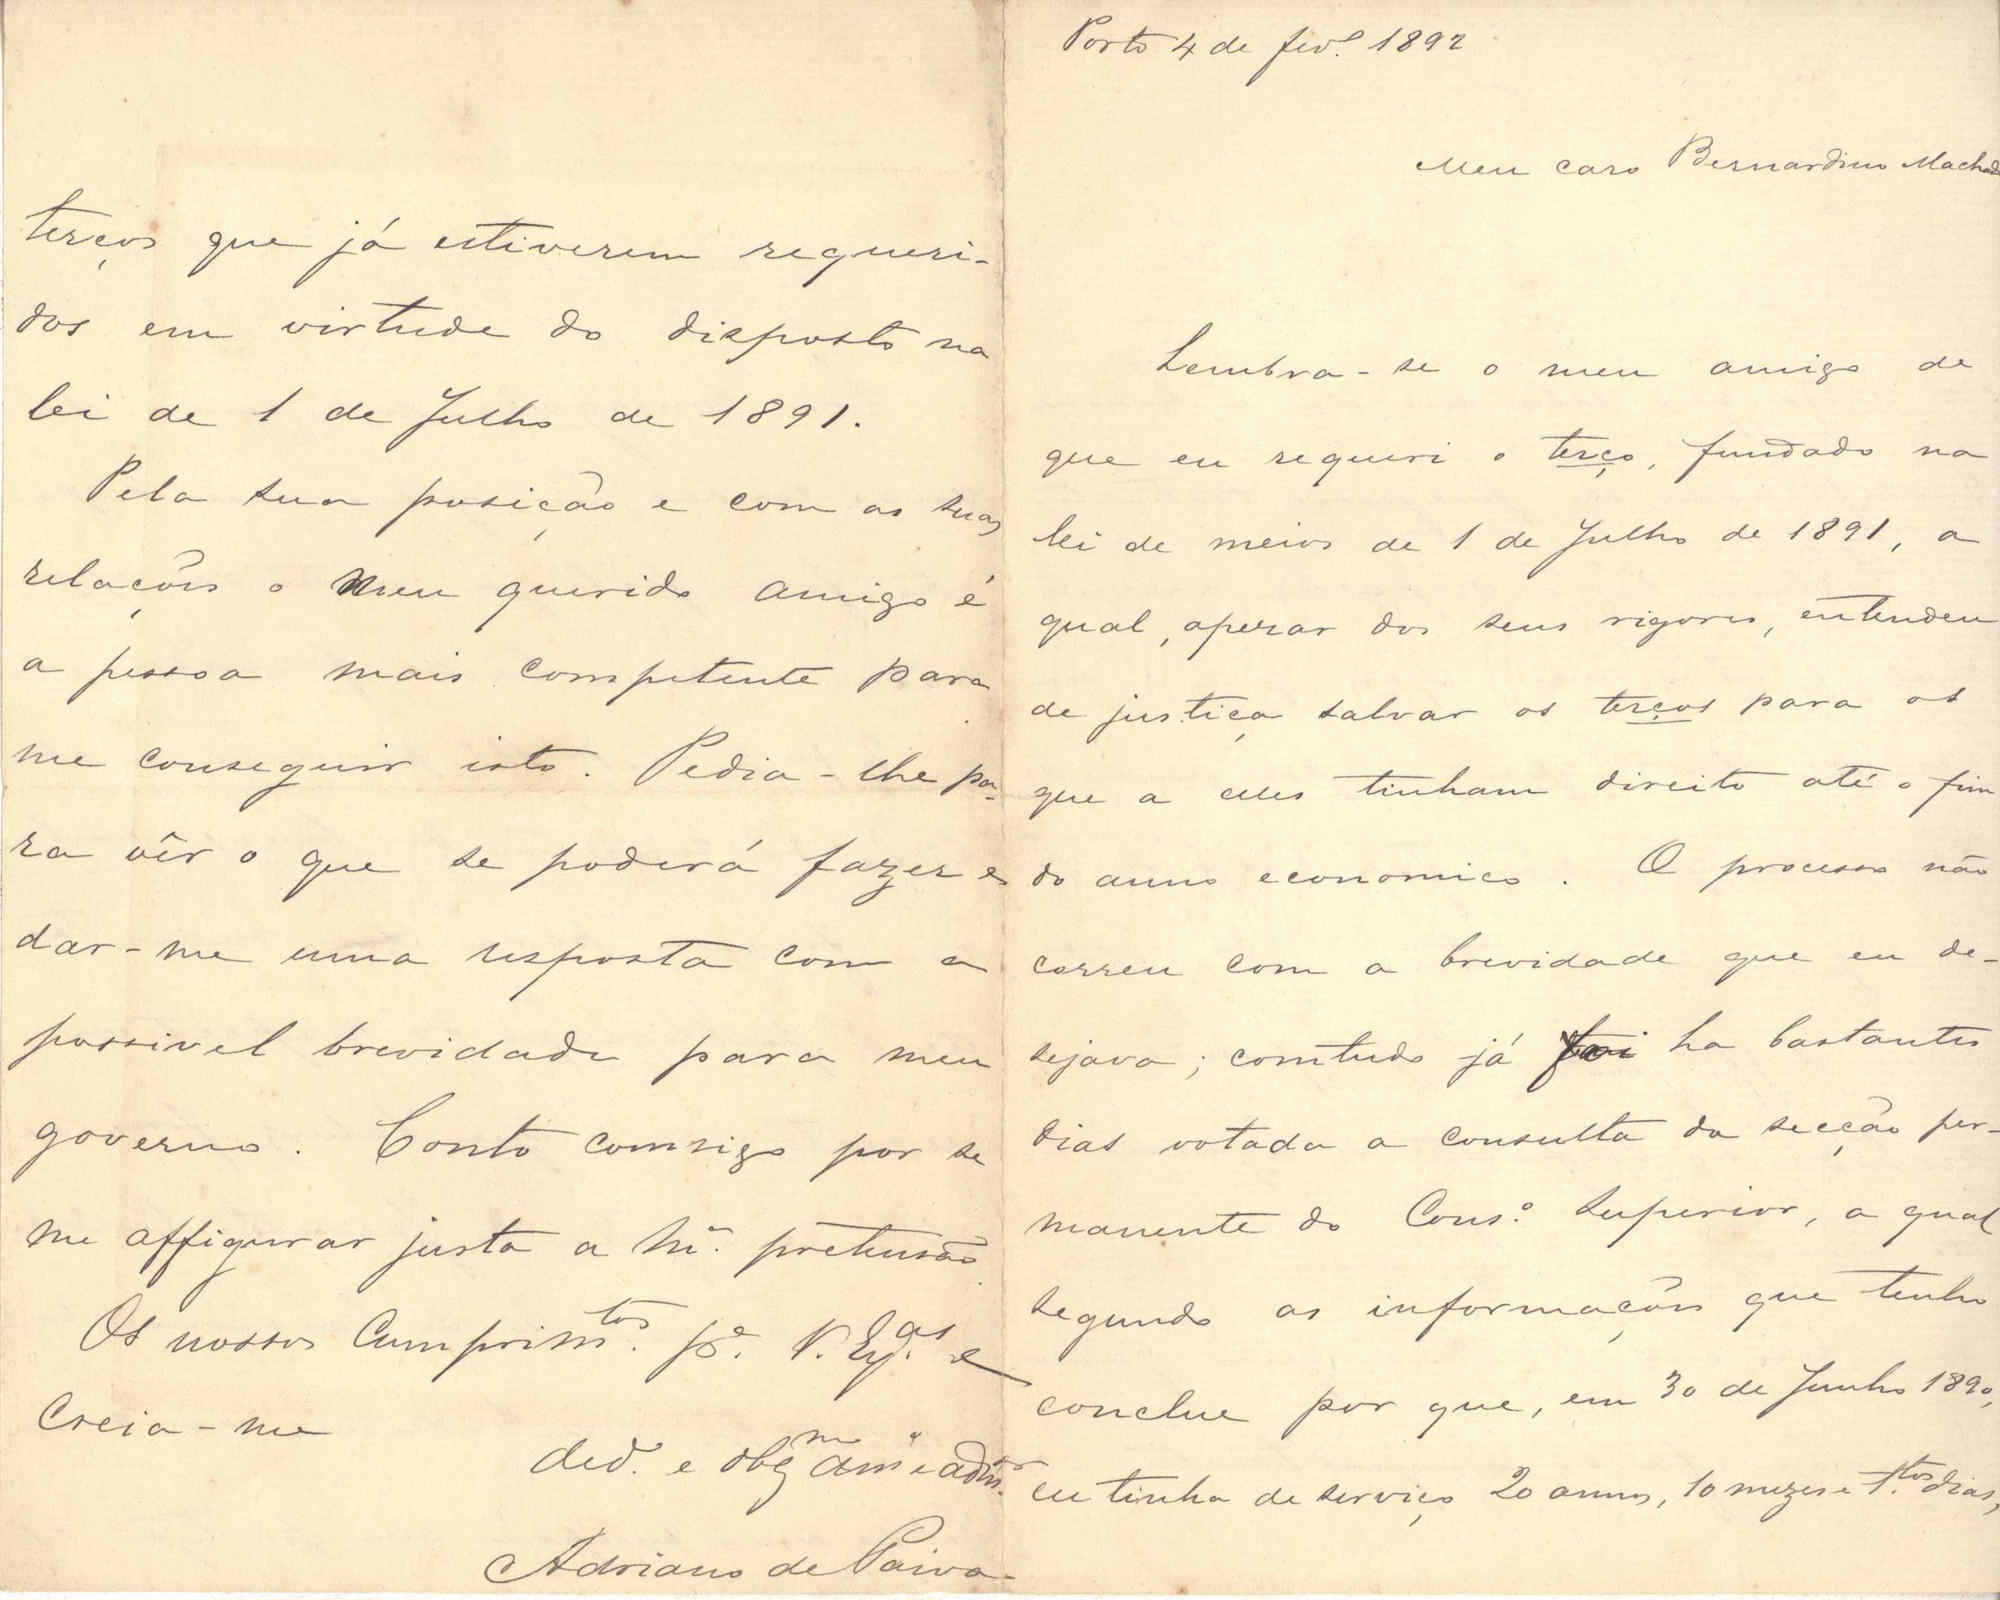 Porto 4 de fev.º 1892
Meu caro Bernardino Machado
Lembra-se o meu amigo de
que eu requeri o terço, fundado na
lei de meios de 1 de Julho de 1891, a
qual, apezar dos seus rigores, entendeu
de justiça salvar os terços para os
que a elles tinham direito até o fim
do anno economico. O processo não
correu com a brevidade que eu de-
sejava; comtudo já foi ha bastantes
dias votada a consulta da secção per-
manente do Cons.º Superior, a qual
segundo as informações que tenho
conclue por que, em 30 de Junho 1890,
eu tinha de serviço 20 annos, 10 mezes e t.tos dias,
terços que já estiverem requeri-
dos em virtude do disposto na
lei de 1 de Julho de 1891.
Pela sua posição e com as suas
relações o meu querido amigo é
a pessoa mais competente para
me conseguir isto. Pedia-lhe pa-
ra vêr o que se poderá fazer e
dar-me uma resposta com a
possivel brevidade para meu
governo. Conto comsigo por se
me affigurar justa a m.ª pretensão
Os nossos Cumprim.tos p.ª V. Ex.as e
Creia-me
ded.º e obg.mo am.º e adm.or
Adriano de Paiva